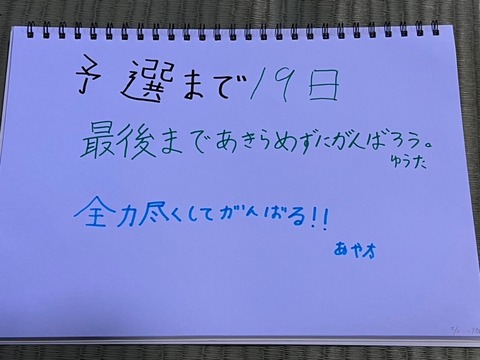 予選まで19日
最後まであきらめずにがんばろう。
ゆうた
全力尽くしてがんばる!!
あやオ